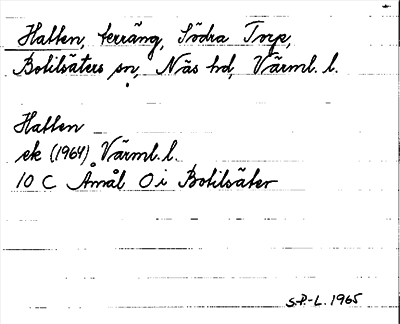 Hatten, terräng, Södra Torp,
Botilsäters sn, Näs hd, Värml. l.
Hatten
ek (1964) Värml. l.
10 C Åmål O i Botilsäter
S.P.-L. 1965